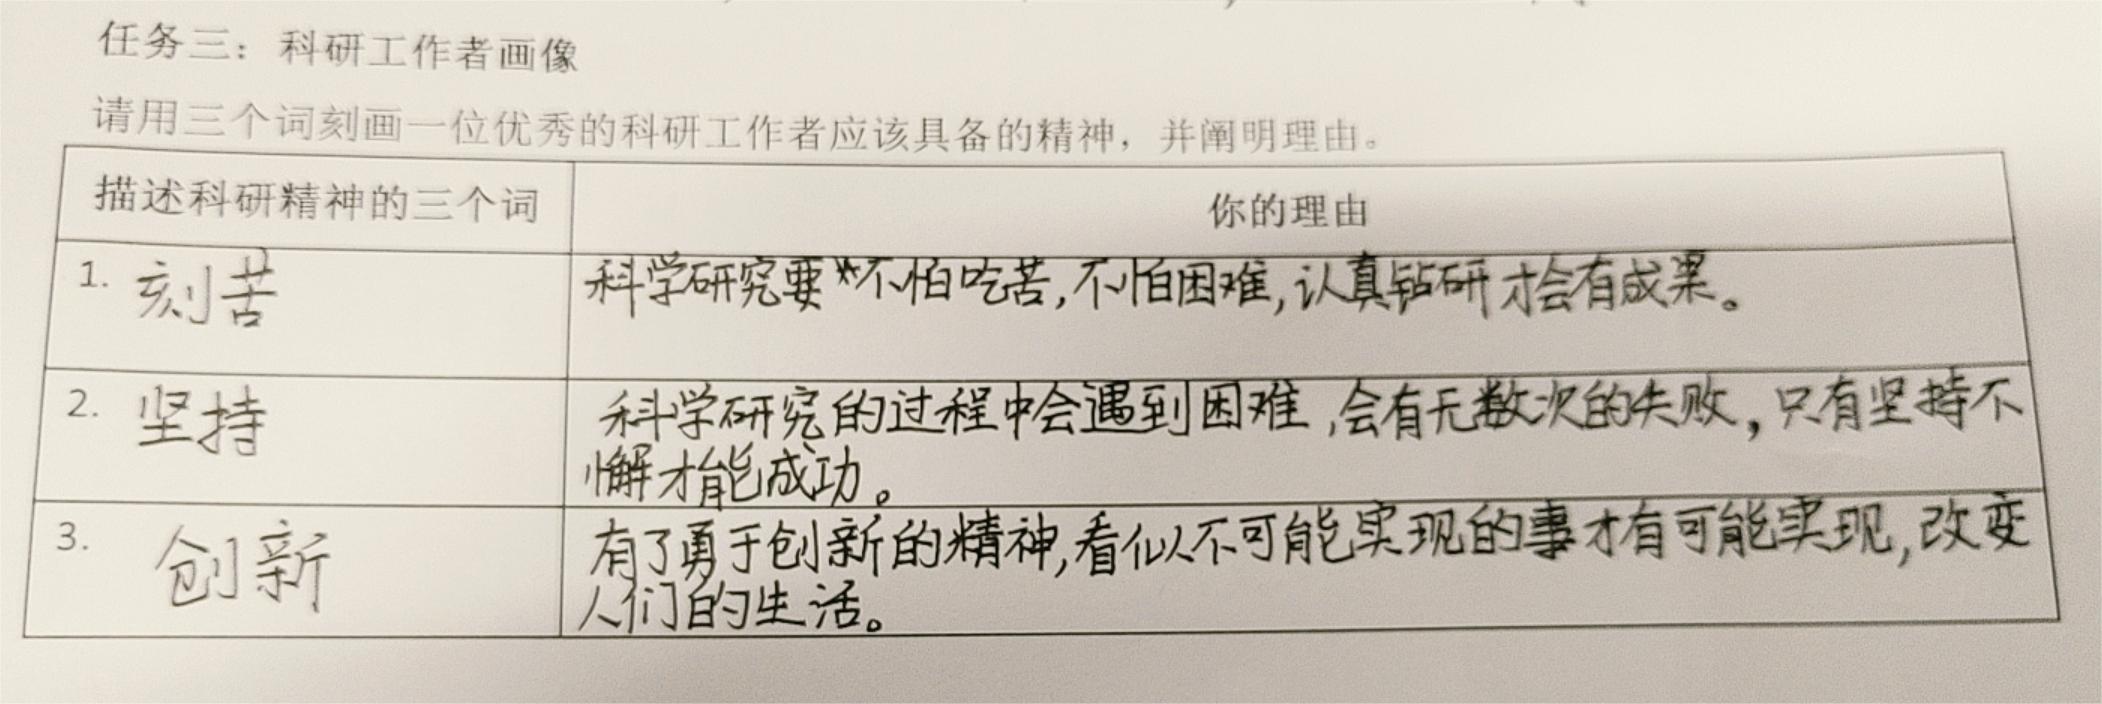 任务三：科研工作者画像
请用三个词刻画一位优秀的科研工作者应该具备的精神，并阐明理由。
描述科研精神的三个词
你的理由
1. 刻苦
科学研究要不怕吃苦，不怕困难，认真钻研才会有成果。
2. 坚持
科学研究的过程中会遇到困难，会有无数次的失败，只有坚持不
懈才能成功。
3. 创新
有了勇于创新的精神，看似不可能实现的事才有可能实现，改变
人们的生活。